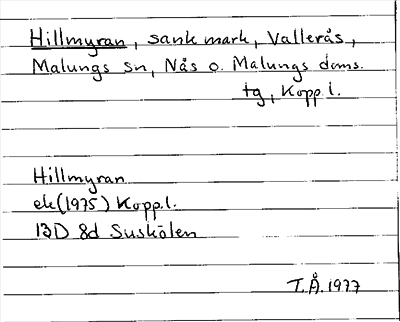 Hillmyran, sank mark, Vallerås,
Malungs sn, Nås o. Malungs doms.
tg, Kopp.l.
Hillmyran
ek (1975) Kopp.l.
13D 8d Suskölen
T.Å. 1977